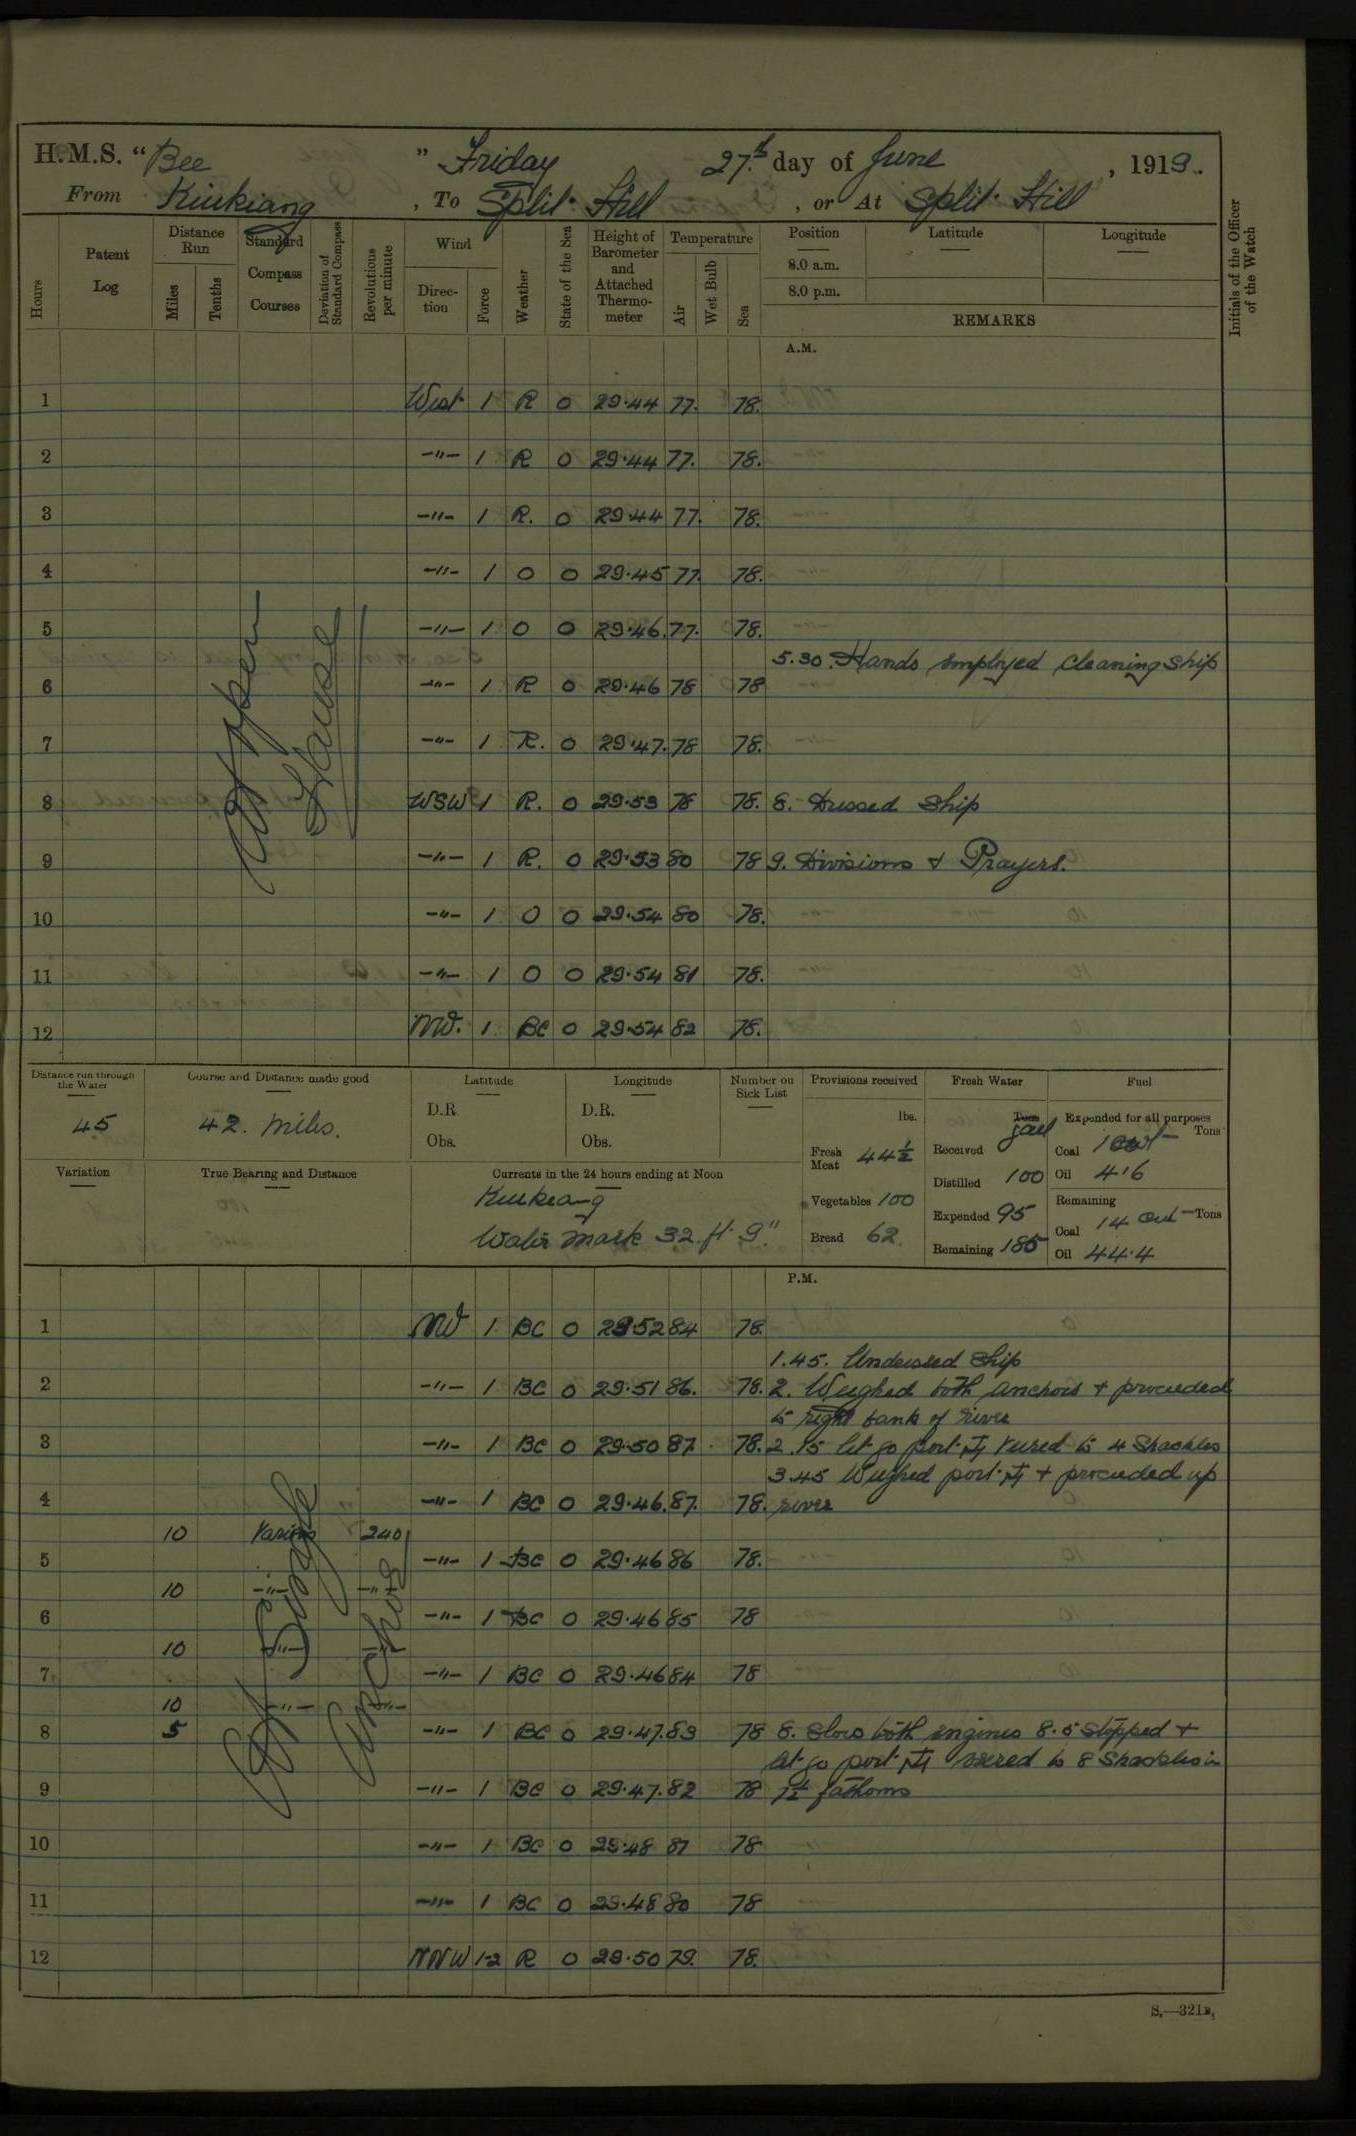 H.M.S. "Bee" Friday 27th day of June, 1919.
From Kiukiang, To Split Hill, or At Split Hill
Hours
Patent Log
Distance Run
Miles
Tenths
Standard Compass Courses
Deviation of Standard Compass
Revolutions per minute
Wind
Direction
Force
Weather
State of the Sea
Height of Barometer and Attached Thermometer
Temperature
Air
Wet Bulb
Sea
Position
8.0 a.m.
8.0 p.m.
Latitude
Longitude
REMARKS
Initials of the Officer of the Watch
A.M.
1 West 1 R 0 29.44 77. 78.
2 -"- 1 R 0 29.44 77. 78.
3 -"- 1 R. 0 29.44 77. 78.
4 -"- 1 O 0 29.45 77. 78.
5 -"- 1 O 0 29.46. 77. 78.
5.30. Hands employed cleaning ship
6 -"- 1 R 0 29.46 78 78
7 -"- 1 R. 0 29.47. 78 78.
8 WSW 1 R. 0 29.53 78 78. 8. Dressed Ship
9 -"- 1 R. 0 29.53 80 78 9. Divisions & Prayers.
10 -"- 1 O 0 29.54 80 78.
11 -"- 1 O 0 29.54 81 78.
12 NW. 1 BC 0 29.54 82 78.
Distance run through the Water
45
Course and Distance made good
42. miles.
Latitude
D.R.
Obs.
Longitude
D.R.
Obs.
Number on Sick List
Provisions received
lbs.
Fresh Meat 44½
Vegetables 100
Bread 62.
Fresh Water
Tons
gall
Received
Distilled 100
Expended 95
Remaining 185
Fuel
Expended for all purposes
Tons
Coal 1 cwt
Oil 4.6
Remaining
Coal 14 cwt Tons
Oil 44.4
Variation
True Bearing and Distance
Currents in the 24 hours ending at Noon
Kiukiang
Water mark 32. ft. 9."
P.M.
1 NW 1 BC 0 29.52 84 78.
1.45. Undressed Ship
2 -"- 1 BC 0 29.51 86. 78. 2. Weighed both anchors & proceeded
to right bank of river
3 -"- 1 BC 0 29.50 87. 78. 2.15 let go port veered to 4 Shackles
3.45 Weighed port & proceeded up
4 -"- 1 BC 0 29.46. 87. 78. river
10 Various 240
5 -"- 1 BC 0 29.46 86 78.
10 -"- -"-
6 -"- 1 BC 0 29.46 85 78
10 -"- -"-
7 -"- 1 BC 0 29.46 84 78
10 -"- -"-
8 5 -"- 1 BC 0 29.47. 83 78 8. Slow both engines 8.5 Stopped &
let go port veered to 8 Shackles in
9 -"- 1 BC 0 29.47. 82 78 7½ fathoms
10 -"- 1 BC 0 29.48 81 78
11 -"- 1 BC 0 29.48 80 78
12 NNW 1-2 R 0 29.50 79. 78.
At Single
Anchor
At open
Hawse
S.—321B.